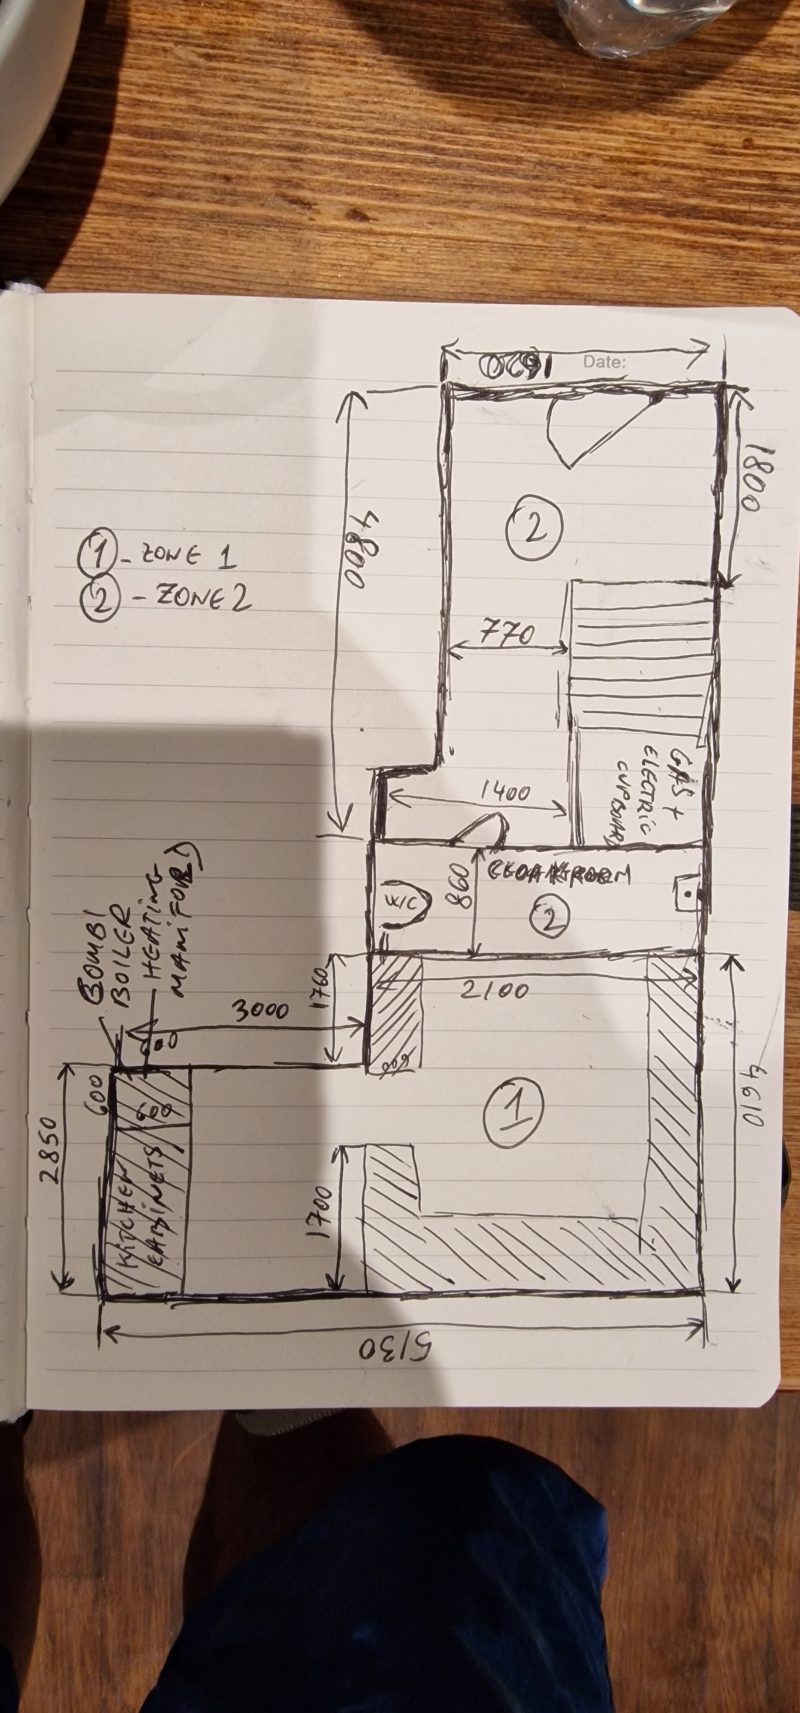 Date:
1620
1800
4800
① - ZONE 1
② - ZONE 2
2
770
GAS +
ELECTRIC
CUPBOARD
1400
CLOAKROOM
W/C
860
2
COMBI
BOILER
HEATING
MANIFOLD
3000
1760
2100
600
600
600
600
2850
KITCHEN
CABINETS
1
1700
4610
5130